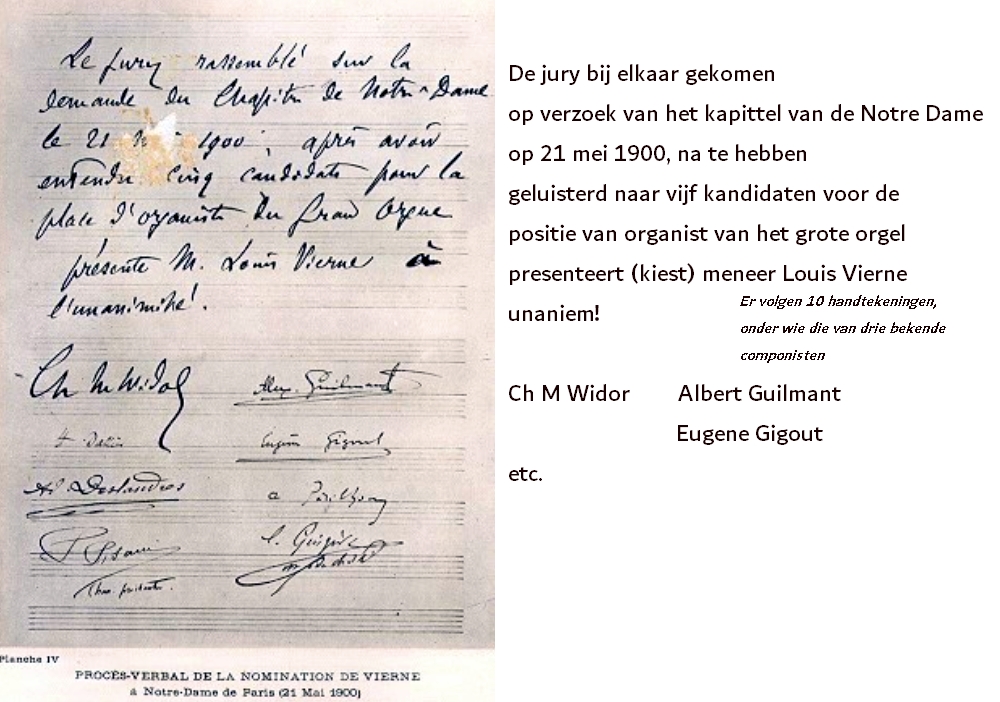 Le jury rassemblé sur la
demande du Chapitre de Notre-Dame
le 21 1900, après avoir
entendu cinq candidats pour la
place d'organiste du Grand Orgue
présente M. Louis Vierne à
l'unanimité.
Ch M Widor
Alex. Guilmant
Eugène Gigout
Ad Deslandres
Planche IV
PROCÈS-VERBAL DE LA NOMINATION DE VIERNE
à Notre-Dame de Paris (21 Mai 1900)
De jury bij elkaar gekomen
op verzoek van het kapittel van de Notre Dame
op 21 mei 1900, na te hebben
geluisterd naar vijf kandidaten voor de
positie van organist van het grote orgel
presenteert (kiest) meneer Louis Vierne
unaniem!
Er volgen 10 handtekeningen,
onder wie die van drie bekende
componisten
Ch M Widor Albert Guilmant
Eugene Gigout
etc.